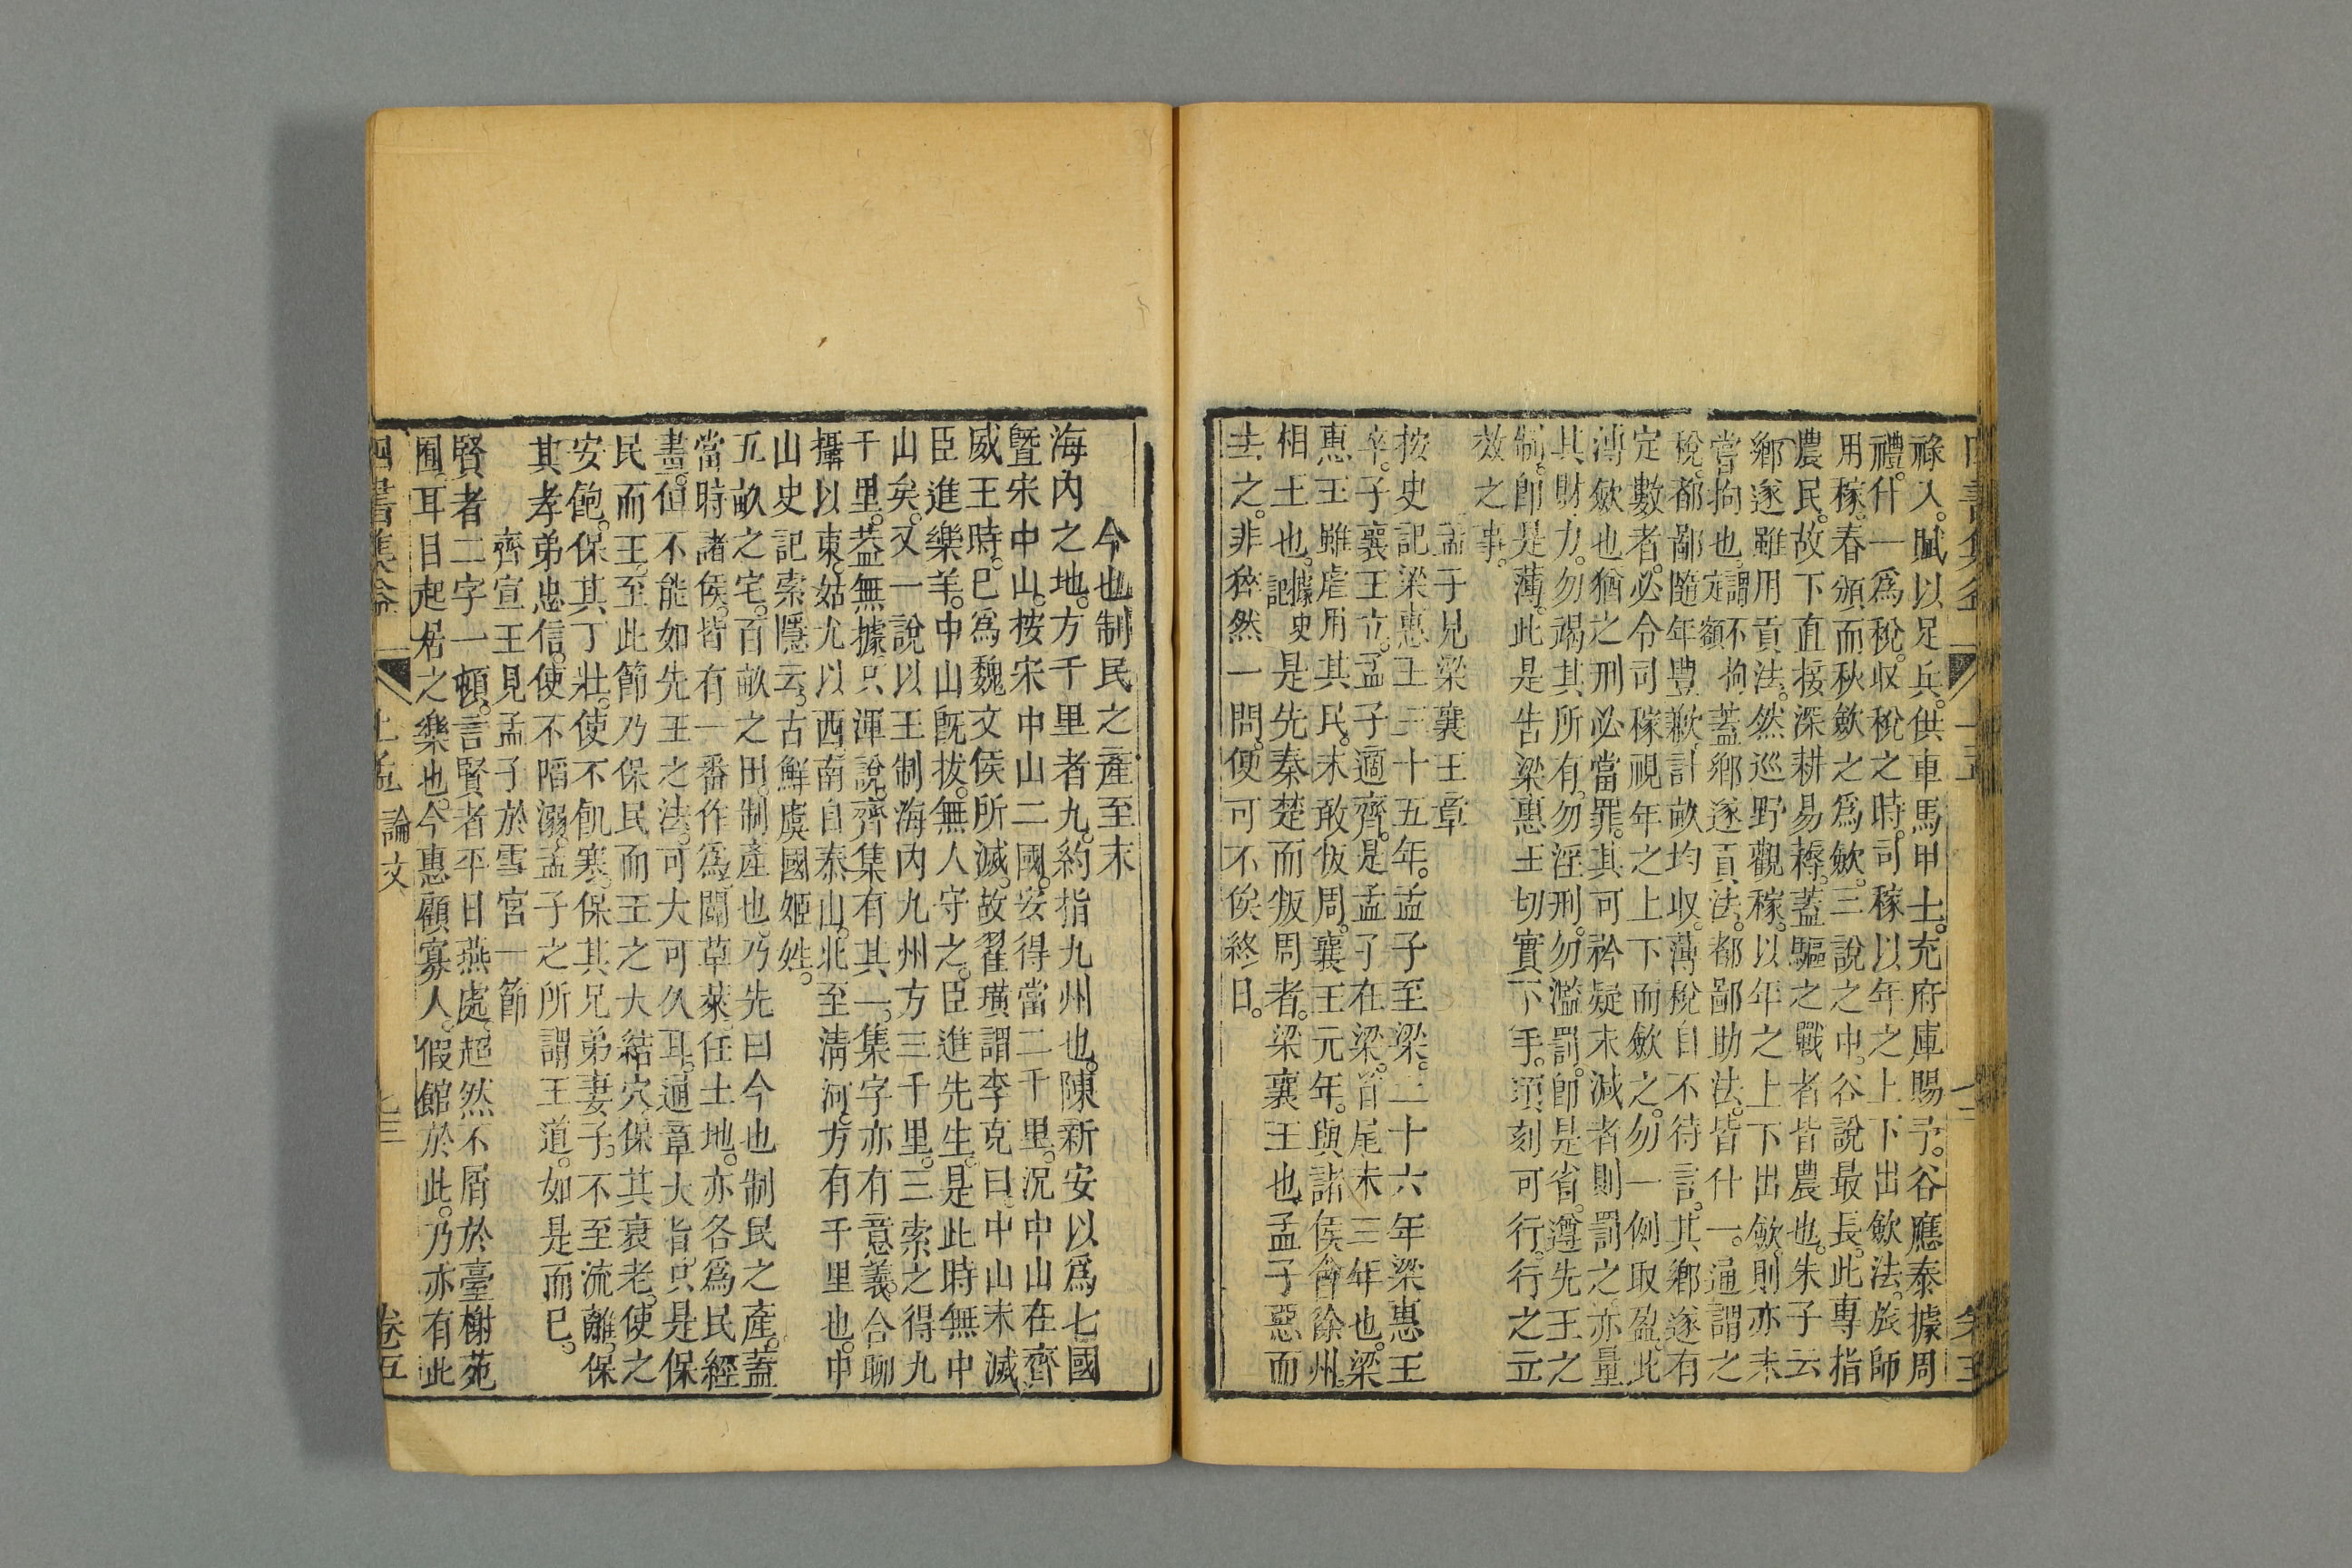 祿入。賦以足兵。供車馬甲士。充府庫賜予。谷應泰據周
禮。什一爲稅。収稅之時。司稼以年之上下出斂法。旅師
用稼。春頒而秋斂之爲斂。三說之中。谷說最長。此專指
農民。故下直接深耕易耨。蓋驅之戰者皆農也。朱子云
鄉遂雖用貢法。然巡野觀稼。以年之上下出斂。則亦未
嘗拘也。謂不拘定額蓋鄉遂貢法。都鄙助法。皆什一。通謂之
稅。都鄙隨年豐歉。計畝均収。薄稅自不待言。其鄉遂有
定數者。必令司稼視年之上下而斂之。勿一例取盈。此
薄斂也。猶之刑必當罪。其可矜疑未減者則罰之。亦量
其財力。勿竭其所有。勿淫刑。勿濫罰。卽是省。遵先王之
制。卽是薄。此是告梁惠王切實下手。頃刻可行。行之立
效之事。
孟子見梁襄王章
按史記梁惠王三十五年。孟子至梁。三十六年梁惠王
卒。子襄王立。孟子適齊。是孟子在梁。首尾未三年也。梁
惠王雖虐用其民。未敢叛周。襄王元年。與諸侯會徐州
相王也。據史記是先秦楚而叛周者。梁襄王也。孟子惡而
去之。非猝然一問。便可不俟終日。
今也制民之產至末
海內之地。方千里者九。約指九州也。陳新安以爲七國
曁宋中山。按宋中山二國。安得當二千里。況中山在齊
威王時。已爲魏文侯所滅。故翟璜謂李克曰。中山未滅
臣進樂羊。中山旣拔。無人守之。臣進先生。是此時無中
山矣。又一說以王制海內九州方三千里。三索之得九
千里。葢無據。只渾說。齊集有其一。集字亦有意義。合聊
攝以東。姑尤以西。南自泰山。北至淸河。方有千里也。中
山史記索隱云。古鮮虞國姬姓。
五畝之宅。百畝之田。制產也。乃先曰今也制民之產。蓋
當時諸侯。皆有一番作爲。闢草萊。任土地。亦各爲民經
畫。但不能如先王之法。可大可久耳。通章大旨。只是保
民而王。至此節乃保民而王之大結穴。保其衰老。使之
安飽。保其丁壯。使不飢寒。保其兄弟妻子。不至流離。保
其孝弟忠信。使不陷溺。孟子之所謂王道。如是而已。
齊宣王見孟子於雪宮一節
賢者二字一頓。言賢者平日燕處。超然不屑於臺榭苑
囿。耳目起居之樂也。今惠顧寡人。假館於此。乃亦有此
四書集益 上孟 論文 卷五